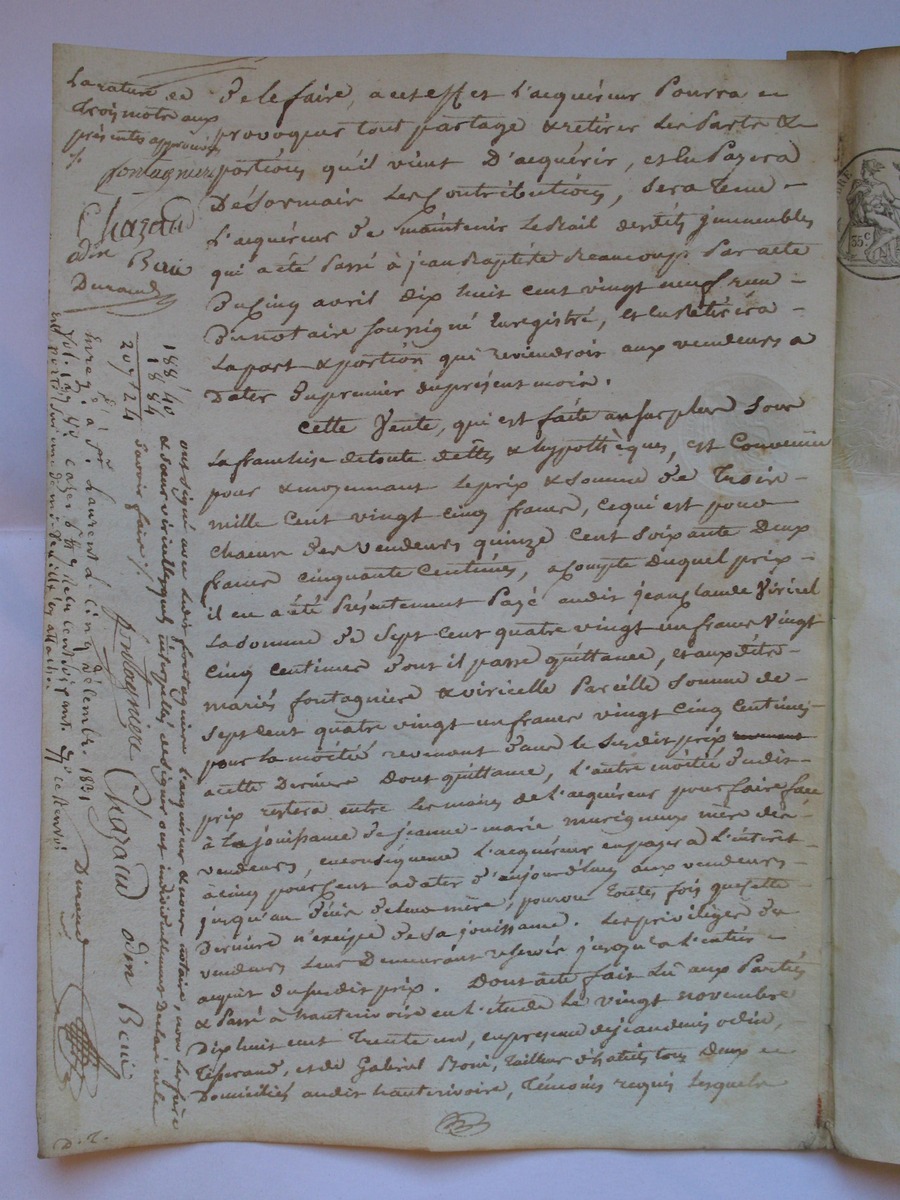 La rature de
trois mots aux
présentes approuvée
fontagnier
Chazaud
odin Beni
Durand
De le faire, a cet effet l'acquéreur Pourra
provoquer tout partage & retirer Les Parts &
portions qu'il vient D'acquérir, et en Payera
Désormais Les Contributions, sera tenu
L'acquéreur De maintenir Le Bail desdits immeubles
qui a été Passé à jean Baptiste Beaucoup Par acte
Du Cinq avril dix huit cent vingt neuf reçu
Du notaire soussigné Enregistré, et en retirera
La part & portion qui reviendroit aux vendeurs a
Dater Du premier du présent mois.
Cette Vente, qui est faite au surplus sous
La franchise de toute dettes & hypothèques, est Convenue
pour & moyennant Le prix & Somme De Trois
mille Cent vingt cinq francs, ce qui est pour
chacun des vendeurs quinze cent soixante Deux
francs cinquante Centimes, a Compte Duquel prix
il en a été Présentement Payé audit jean Claude Viricel
La Somme De Sept Cent quatre vingt un francs Vingt
Cinq Centimes Dont il passe quittance, et auxdits
mariés fontagnière & viricelle Pareille Somme de
Sept Cent quatre vingt un francs vingt Cinq Centimes
pour la moitié revenant dans le susdit prix
a cette Dernière Dont quittance, L'autre moitié Dudit
prix restera entre Les mains de L'acquéreur pour faire face
à La jouissance De jeanne-marie murigneux mère des
vendeurs, en conséquence L'acquéreur en payera L'intérêt
à cinq pour Cent a dater D'aujourd'hui aux vendeurs
jusqu'au Décès De leur mère, pourvu toutes fois que cette
Dernière n'excipe De sa jouissance. Les privilèges Des
vendeurs Leur Demeurant réservés jusqu'à L'entier
acquit Du susdit prix. Dont acte fait Lu aux Parties
& Passé à hauterivoire en L'étude Le vingt novembre
Dix huit cent Trente un, en présence de jean denis odin,
Tisserand, et de Gabriel Boni, Tailleur d'habits tous Deux
Domiciliés audit hauterivoire, Témoins requis Lesquels
ont signé avec ledit fontagnière l'acquéreur & nous notaire, non les frère
& sœur viricelle qui interpellés de signer ont individuellement Déclaré ne le
Savoir faire.
188 / 40
18 84
207 / 24
fontagnière Chazaud odin Beni
Durand
Enreg. à St. Laurent L. cinq décembre 1831
D. T.
35c